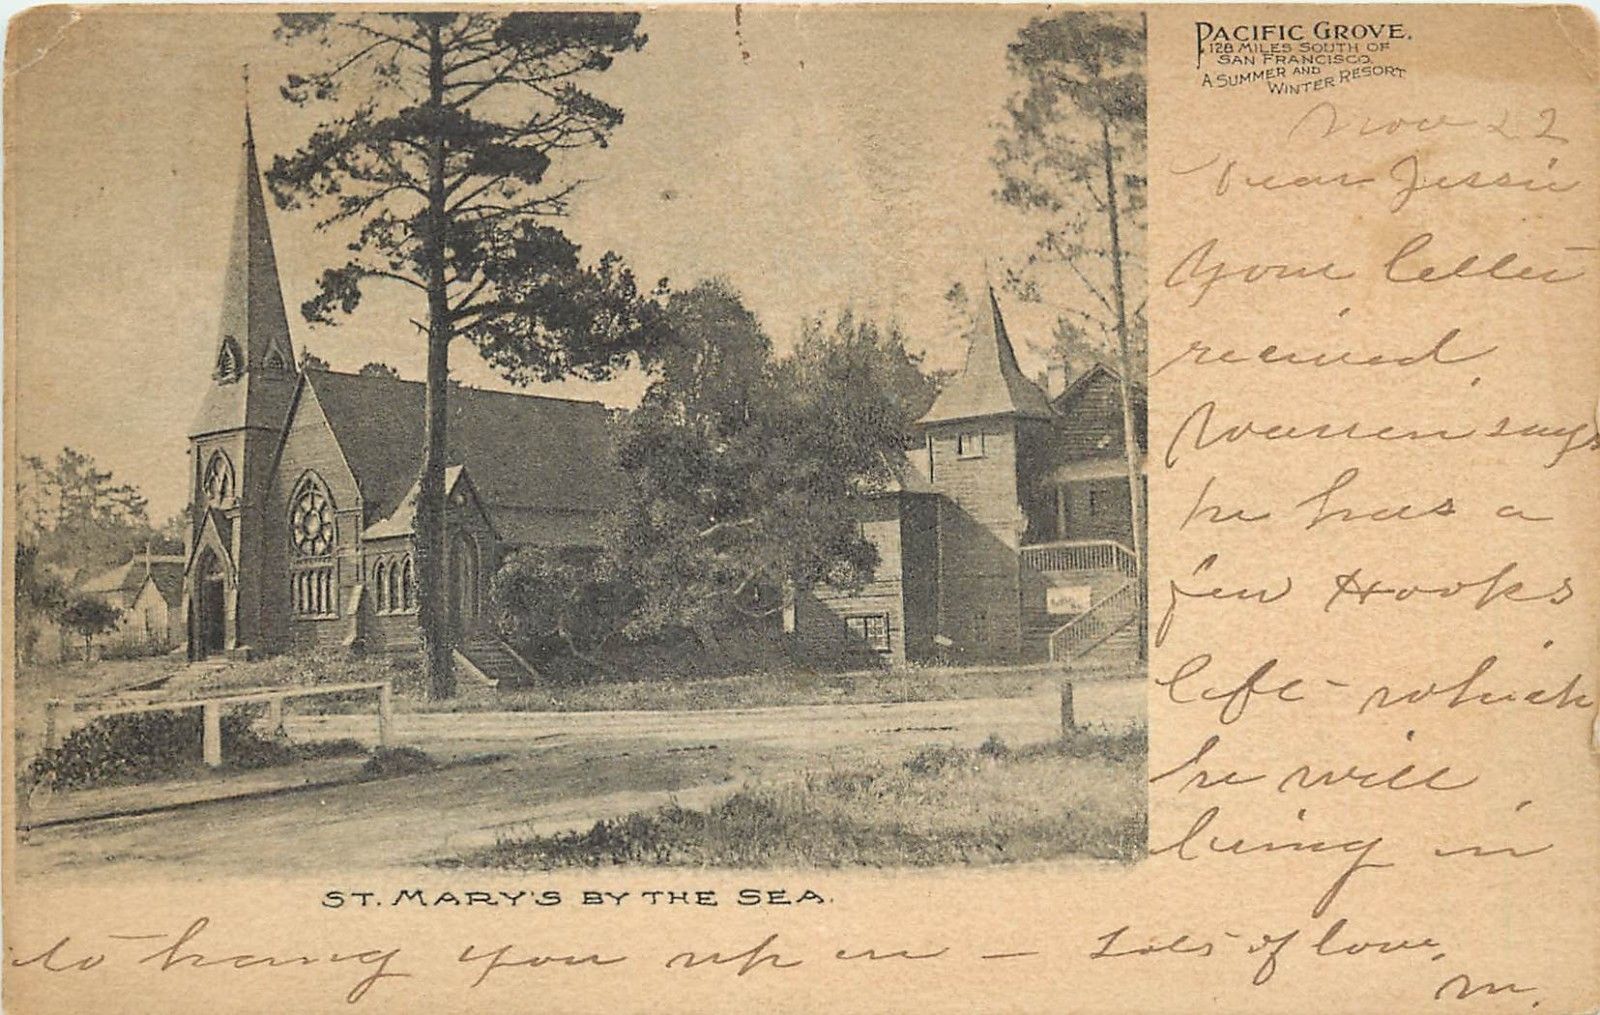 PACIFIC GROVE.
128 MILES SOUTH OF
SAN FRANCISCO.
A SUMMER AND
WINTER RESORT
Nov 22
Dear Jessie
Your letter
received.
Warren says
he has a
few Hooks
left - which
he will
bring in
ST. MARY'S BY THE SEA.
to hang you up on - Lots of love.
M.